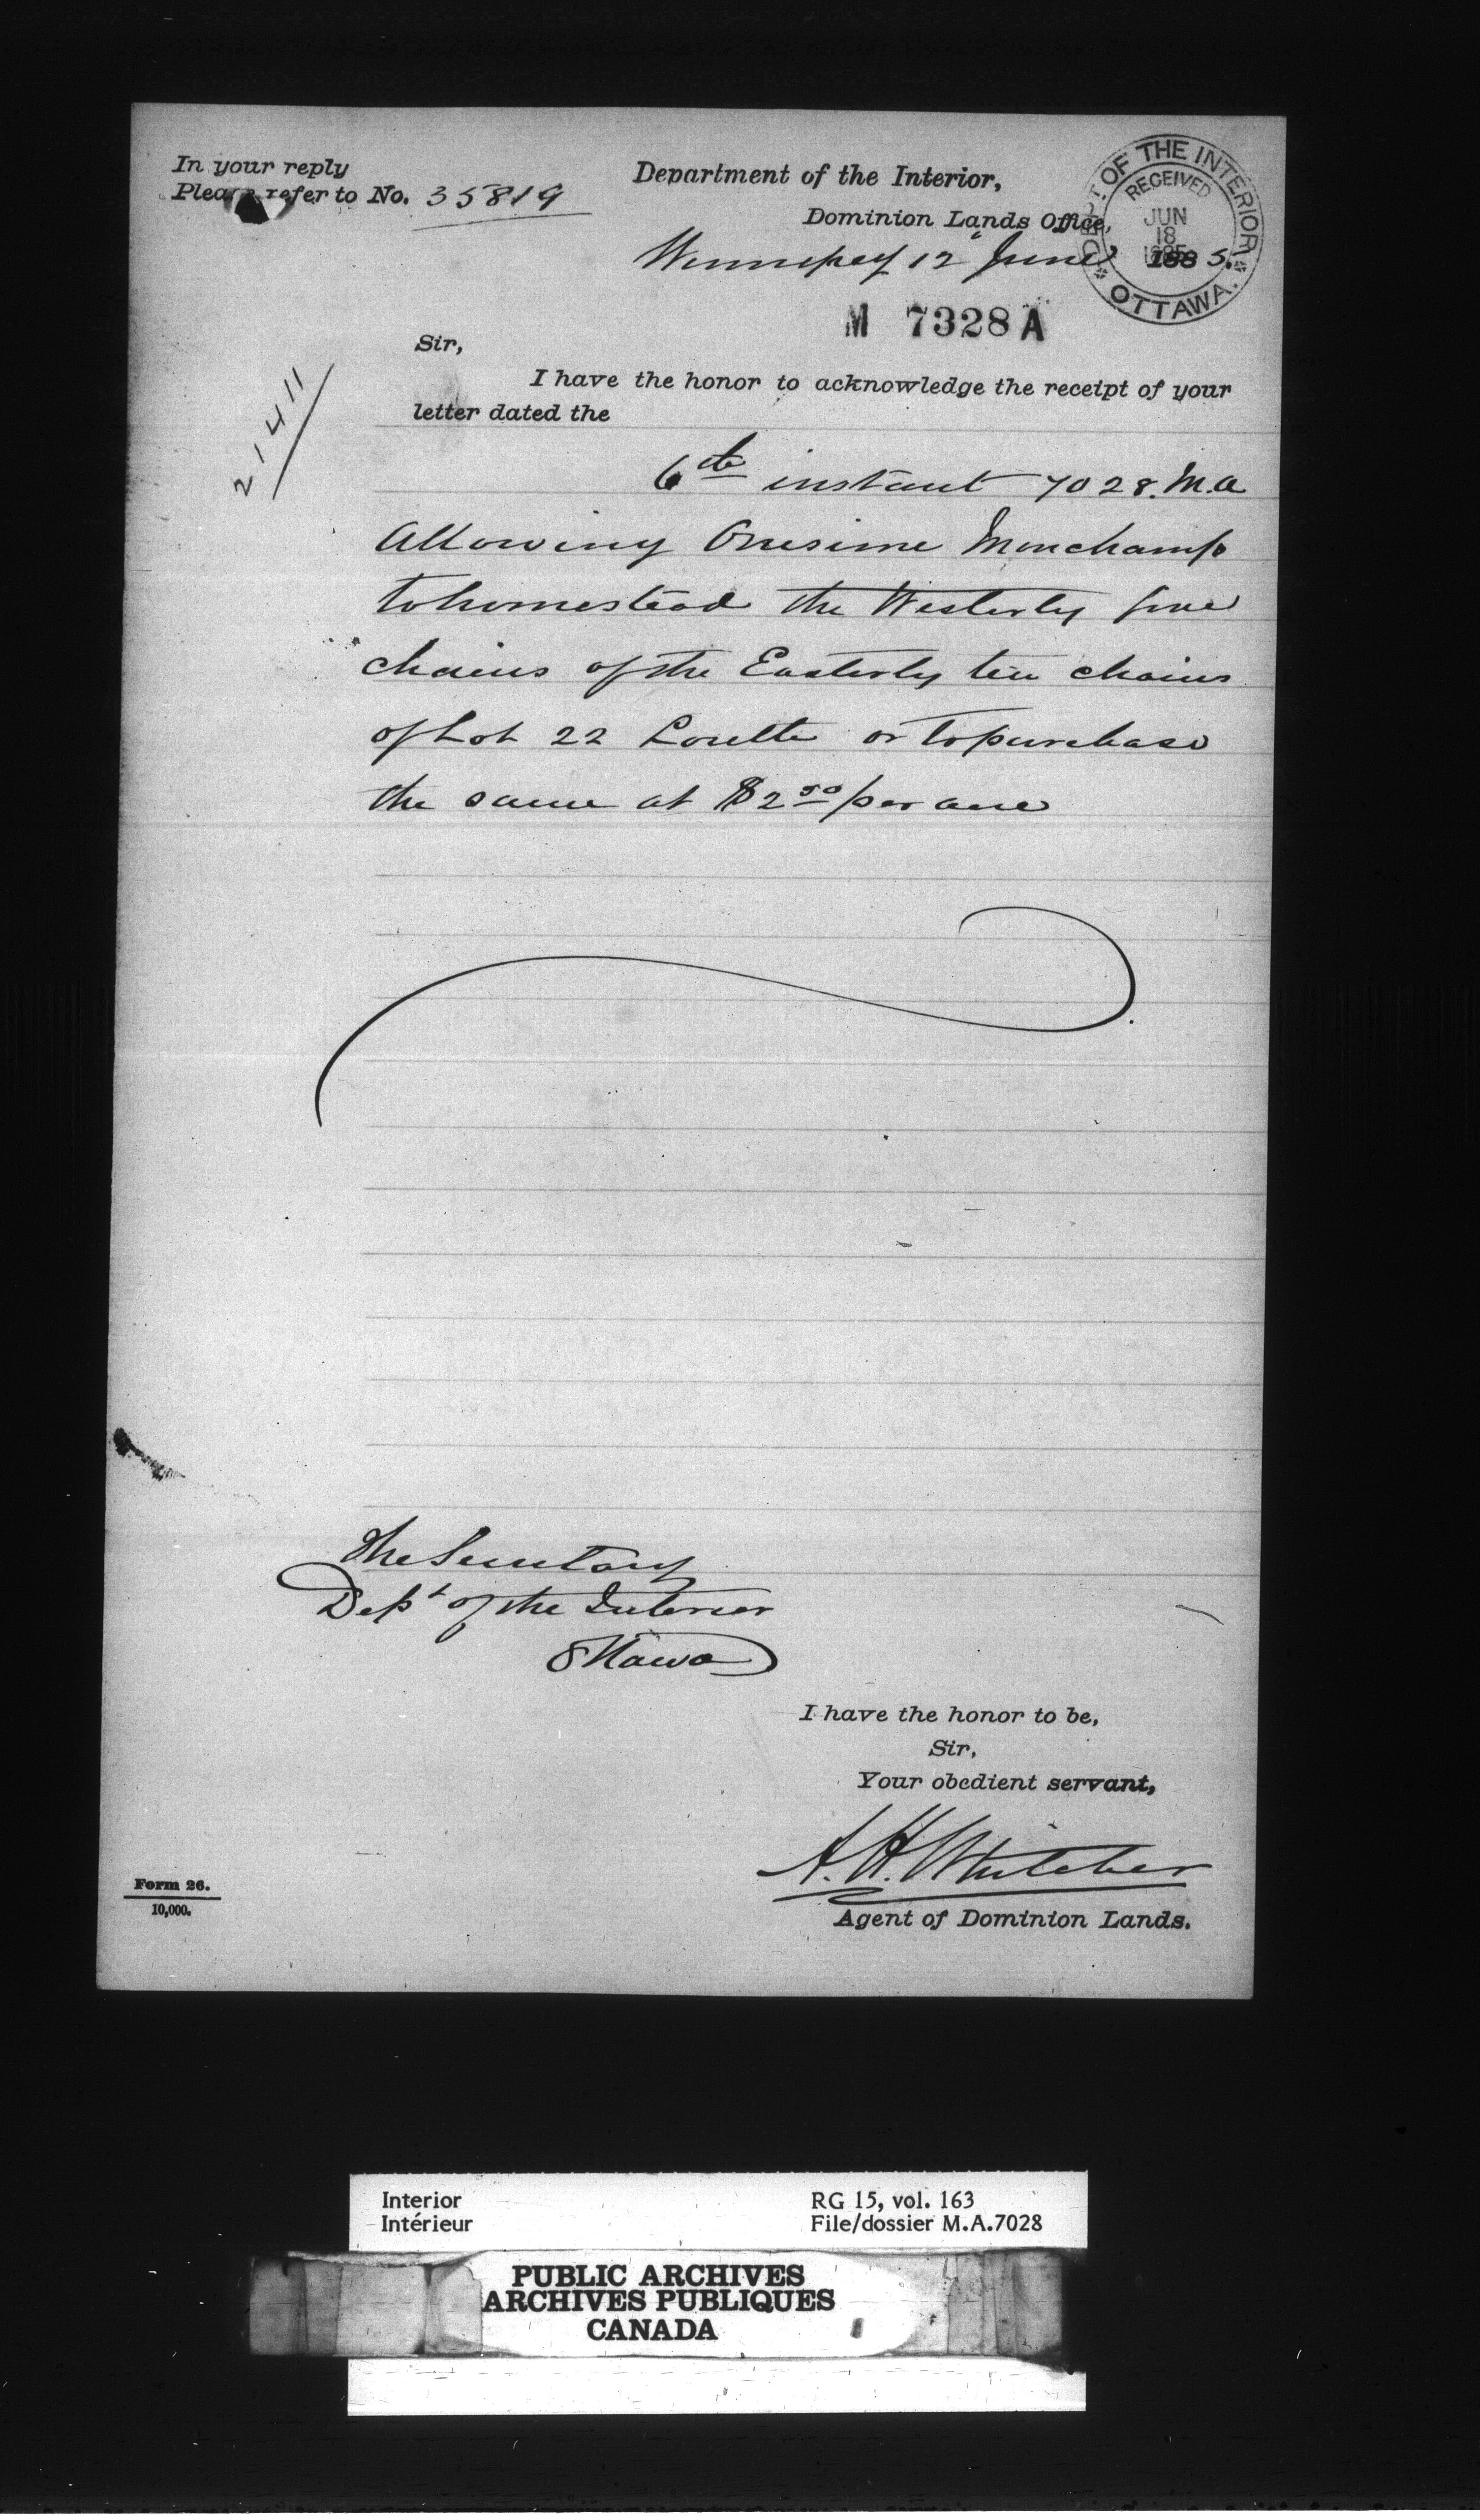 In your reply
Please refer to No. 35819
Department of the Interior,
Dominion Lands Office,
Winnipeg 12" June 1885.
DEPT. OF THE INTERIOR
RECEIVED
JUN
18
1885
OTTAWA.
M 7328 A
21411
Sir,
I have the honor to acknowledge the receipt of your
letter dated the
6th instant 7028. M.A
Allowing Onesime Monchamp
to homestead the Westerly five
chains of the Easterly ten chains
of Lot 22 Lorette or to purchase
the same at $2 50 per acre
The Secretary
Dept of the Interior
Ottawa
I have the honor to be,
Sir,
Your obedient servant,
A. H. Whitcher
Agent of Dominion Lands.
Form 26.
10,000.
Interior
Intérieur
RG 15, vol. 163
File/dossier M.A.7028
PUBLIC ARCHIVES
ARCHIVES PUBLIQUES
CANADA